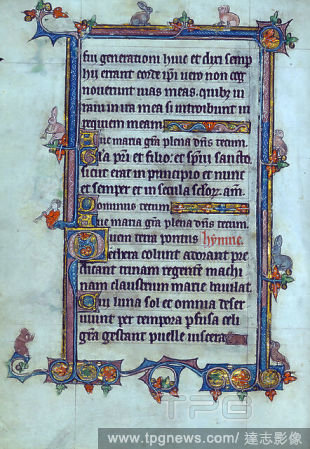 fui generationi huic et dixi semp
hii errant corde ipi uero non cog
nouerunt uias meas. quibz in
raui in ira mea si introibunt in
requiem meam
Aue maria gra plena dns tecum.
Gla pri et filio et spui sancto
sicut erat in principio et nunc
et semper et in secula sclorz. am.
Dominus tecum
Aue maria gra plena dns tecum.
Quem terra pontus hymne.
ethera colunt adorant pre
dicant trinam regente machi
nam claustrum marie baiulat.
Cui luna sol et omnia deser
uiunt per tempora pfusa celi
gra gestant puelle uiscera
TPG
www.tpgnews.com/ 達志影像